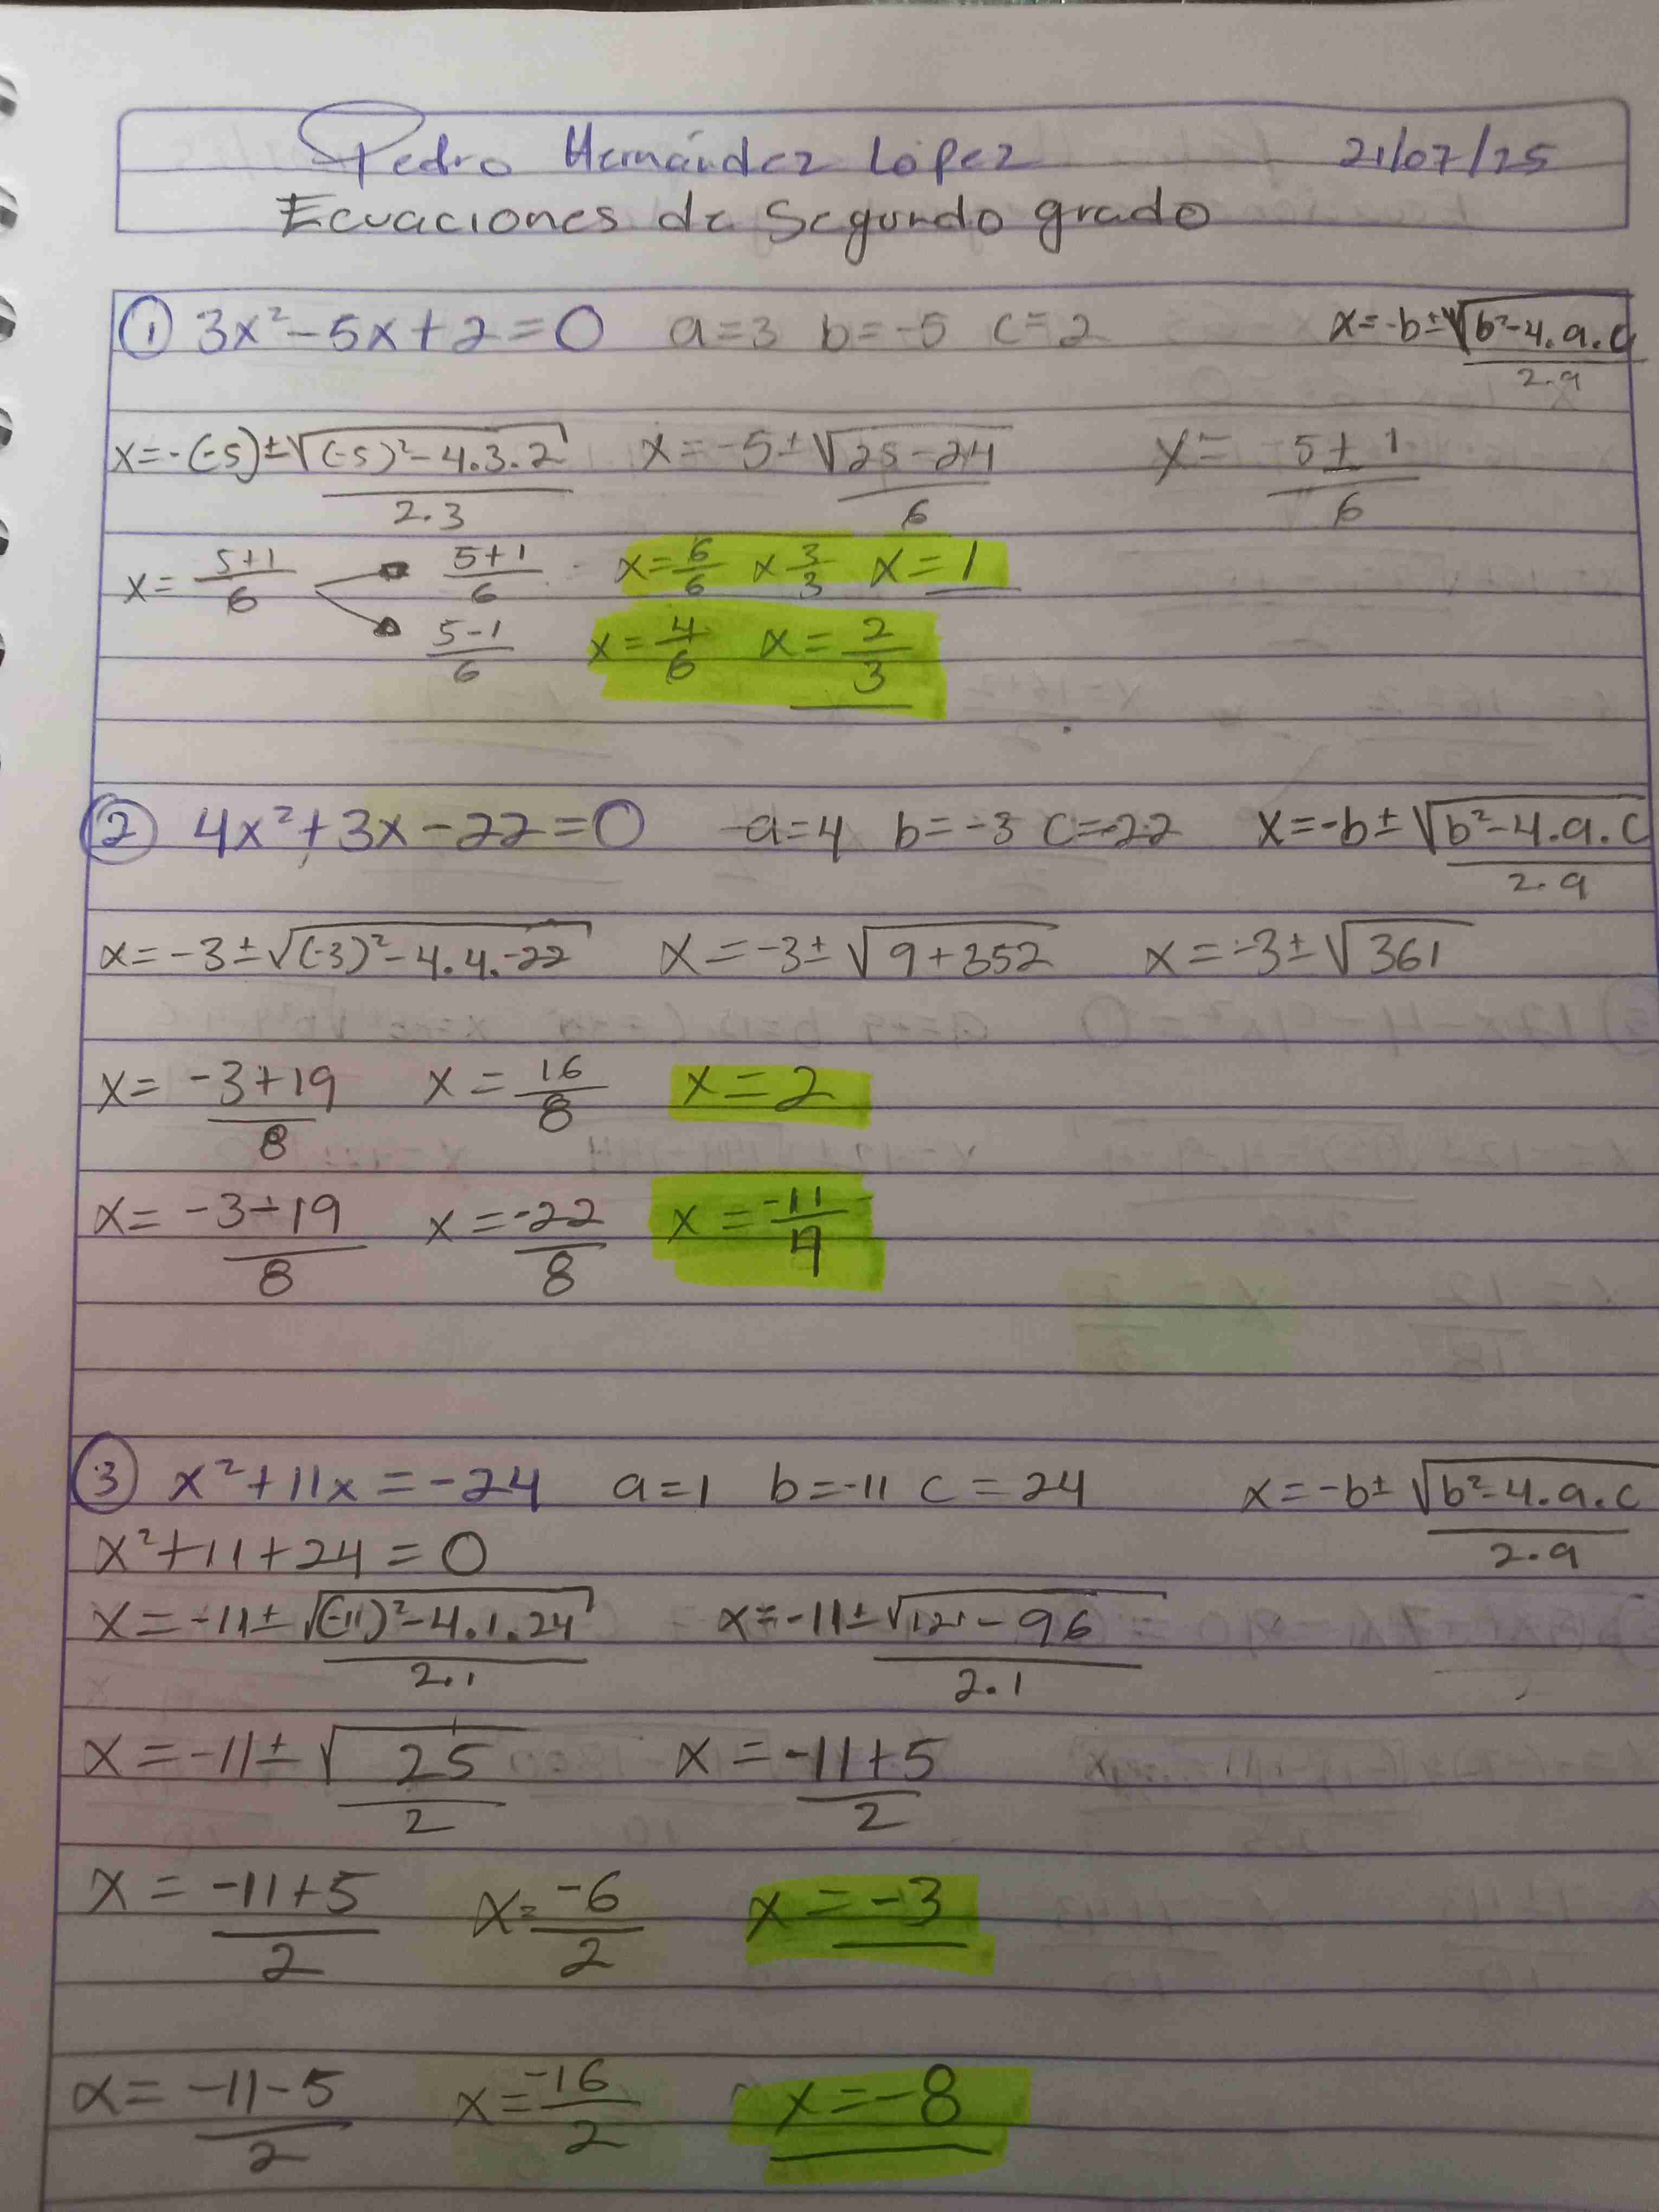 Pedro Hernández López 21/07/25
Ecuaciones de Segundo grado
① 3x²-5x+2=0 a=3 b=-5 c=2 x=-b±√b²-4.a.c
2.a
x=-(-5)±√(-5)²-4.3.2 x=-5±√25-24 x= 5±1
2.3 6 6
x= 5+1 5+1 x=6 x 3 x=1
6 6 6 3
5-1 x=4 x=2
6 6 3
② 4x²+3x-22=0 a=4 b=-3 c=-22 x=-b±√b²-4.a.c
2.a
x=-3±√(-3)²-4.4.-22 x=-3±√9+352 x=-3±√361
x= -3+19 x=16 x=2
8 8
x= -3-19 x=-22 x=-11
8 8 4
③ x²+11x=-24 a=1 b=-11 c=24 x=-b±√b²-4.a.c
2.a
x²+11+24=0
x=-11±√(-11)²-4.1.24 x=-11±√121-96
2.1 2.1
x=-11±√25 x=-11+5
2 2
x=-11+5 x=-6 x=-3
2 2
x=-11-5 x=-16 x=-8
2 2